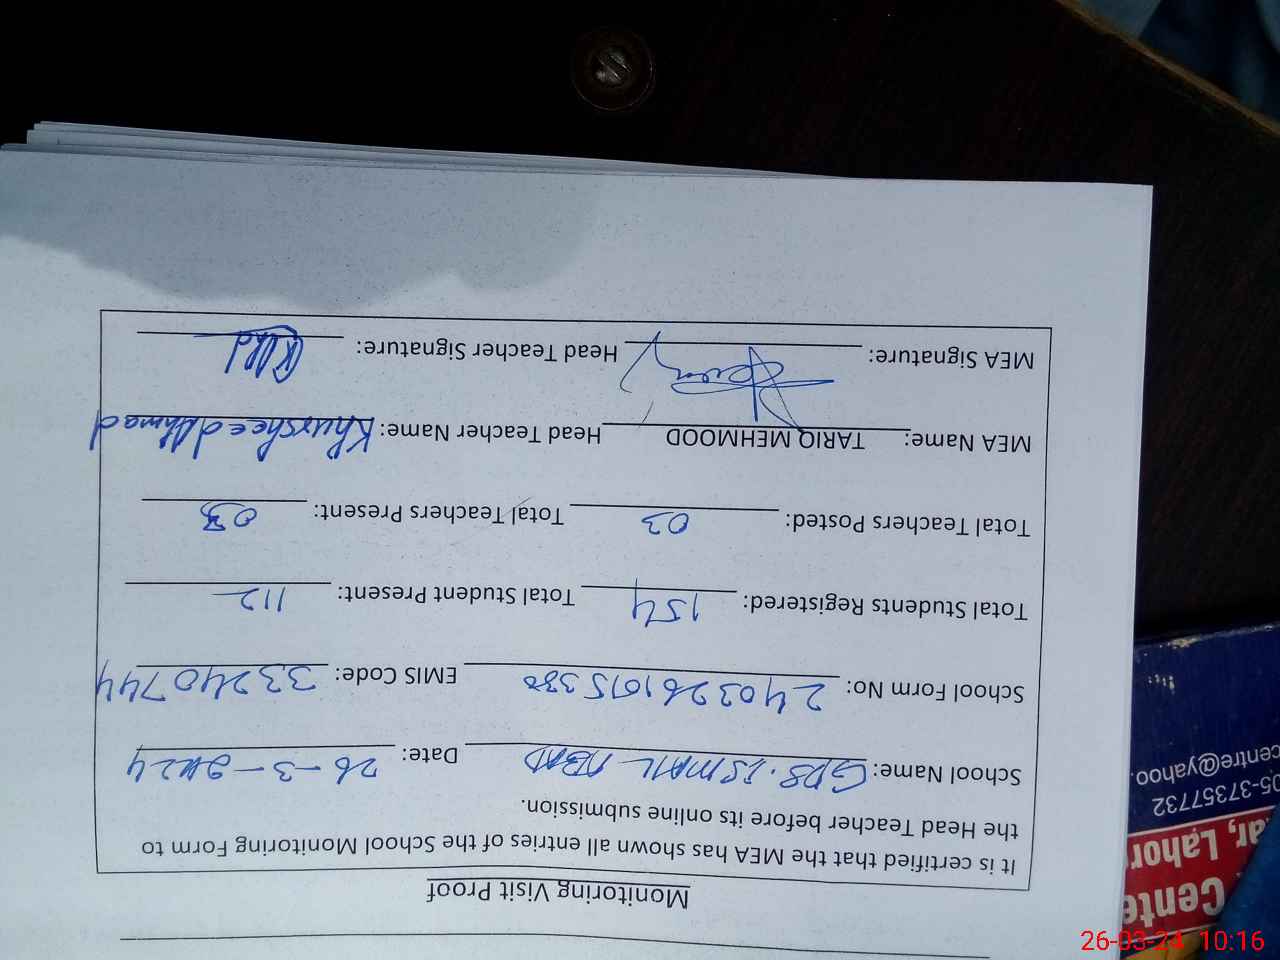 Monitoring Visit Proof
It is certified that the MEA has shown all entries of the School Monitoring Form to
the Head Teacher before its online submission.
School Name: GPS. ISMAIL ABAD Date: 26-3-2024
School Form No: 240326101S380 EMIS Code: 33240744
Total Students Registered: 154 Total Student Present: 112
Total Teachers Posted: 03 Total Teachers Present: 03
MEA Name: TARIQ MEHMOOD Head Teacher Name: Khursheed Ahmad
MEA Signature: Head Teacher Signature:
Cente
ar, Lahor
05-37357732
centre@yahoo.
26-03-24 10:16